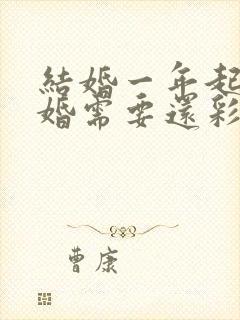 結婚一年起
婚需要還彩
曹康